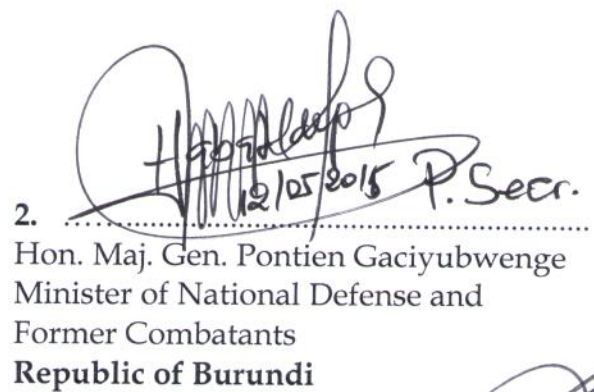 12/05/2015 P. Secr.
2. ........................................................................
Hon. Maj. Gen. Pontien Gaciyubwenge
Minister of National Defense and
Former Combatants
Republic of Burundi